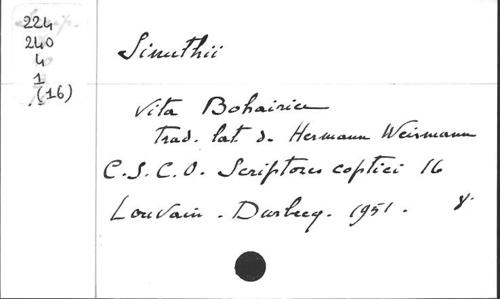 224
240
4
1
(16)
Sinuthii
Vita Bohairice
trad. lat. d. Hermann Weismann
C.S.C.O. Scriptores coptici 16
Louvain. Durbecq. 1951. 8.